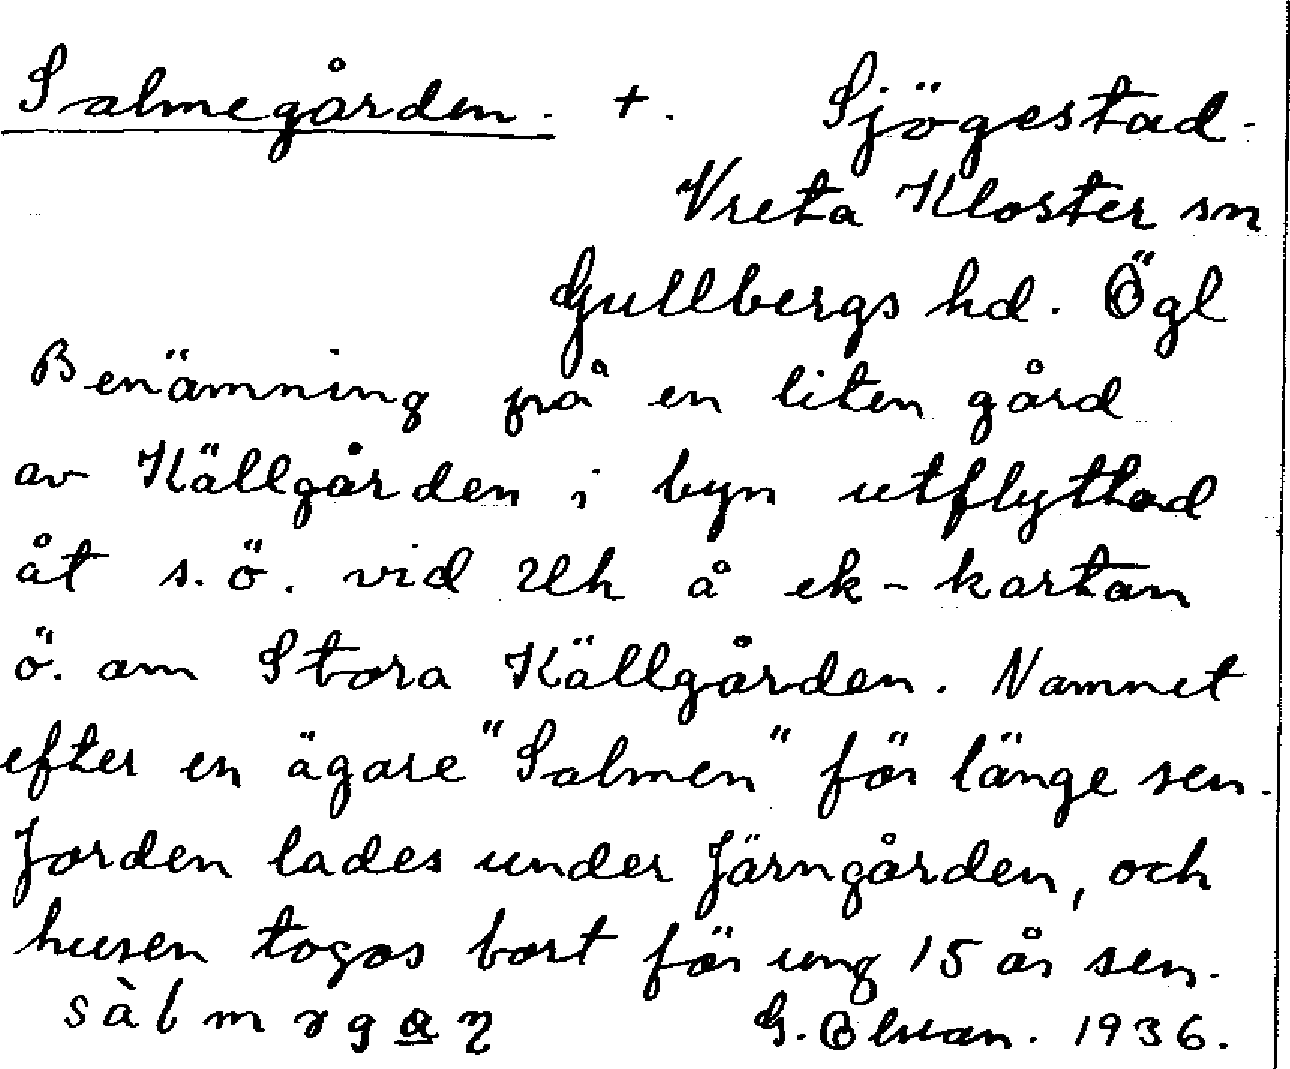 Salmegården. +. Sjögestad.
Vreta Kloster sn
Gullbergs hd. Ögl
Benämning på en liten gård
av Källgården i byn utflyttad
åt s.ö. vid Uh å ek-kartan
ö. om Stora Källgården. Namnet
efter en ägare "Salmen" för länge sen.
Jorden lades under Järngården, och
husen togos bort för ung 15 år sen.
G. 1936.